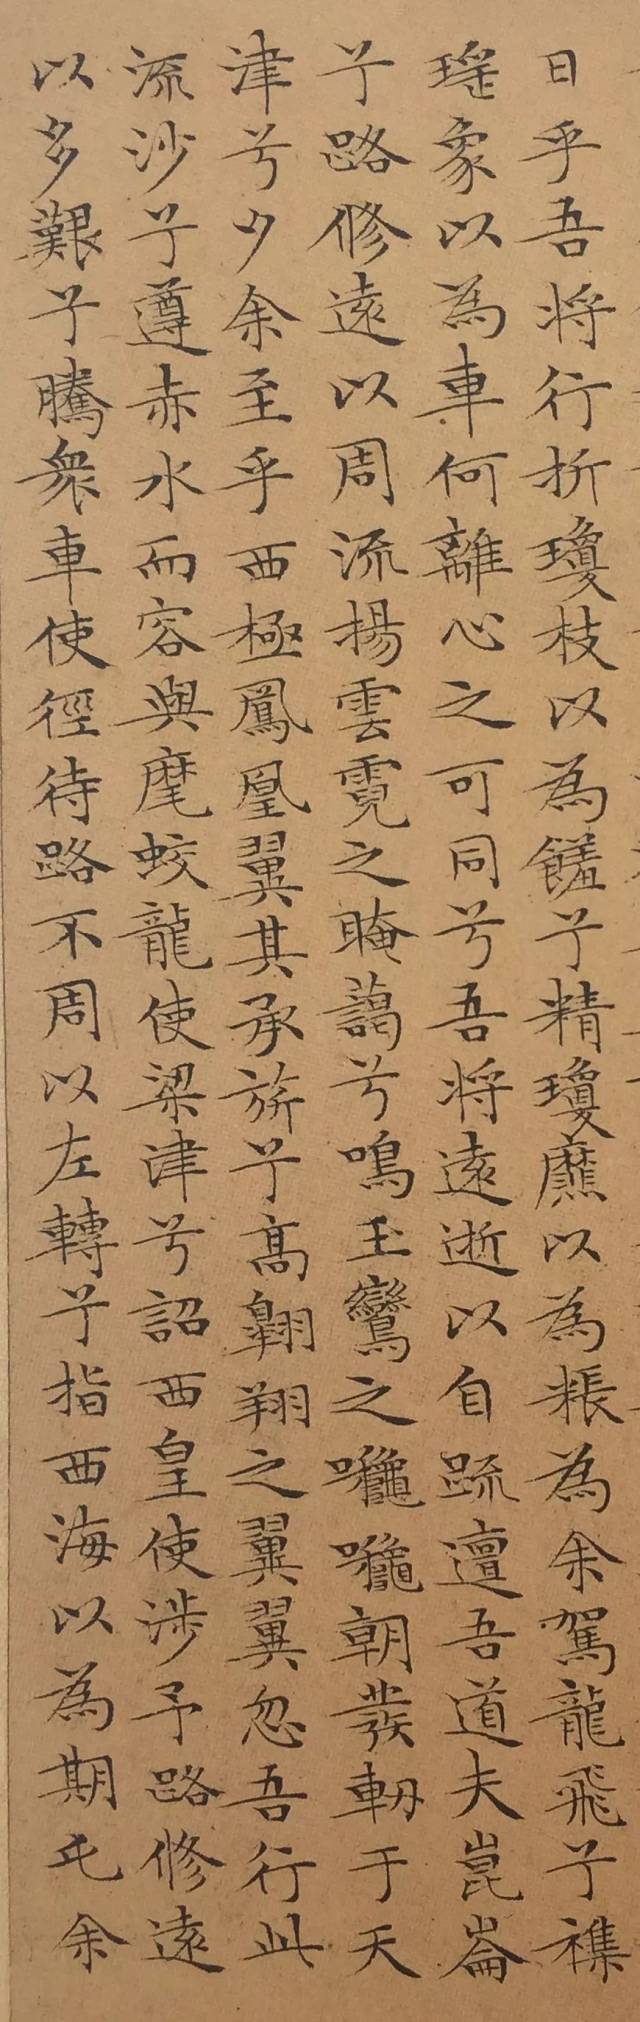 日乎吾将行折瓊枝以為饈兮精瓊爢以為粻為余駕龍飛兮襍
瑤象以為車何離心之可同兮吾将遠逝以自疏邅吾道夫崑崙
兮路修遠以周流揚雲霓之晻藹兮鳴玉鸞之啾啾朝發軔于天
津兮夕余至乎西極鳳凰翼其承旂兮高翱翔之翼翼忽吾行此
流沙兮遵赤水而容與麾蛟龍使梁津兮詔西皇使涉予路修遠
以多艱兮騰衆車使徑待路不周以左轉兮指西海以為期屯余